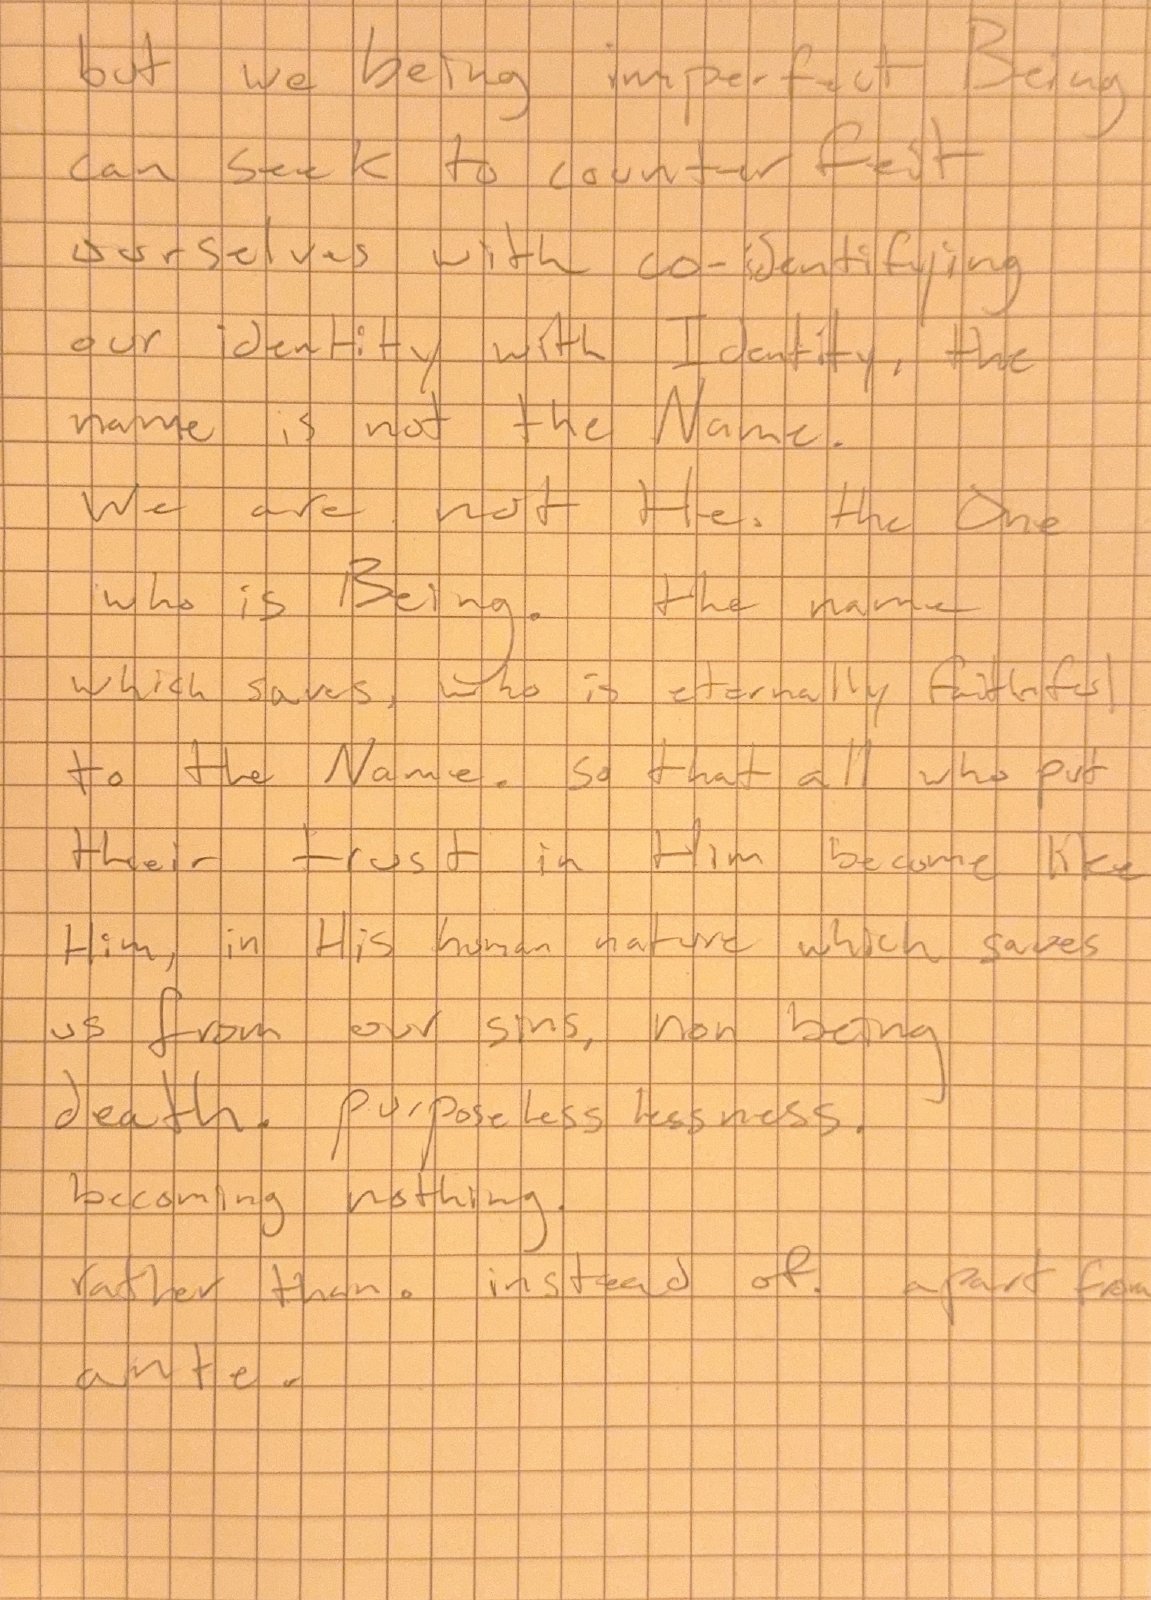 but we being imperfect Being
can seek to counterfeit
ourselves with co-identifying
our identity with Identity, the
name is not the Name.
We are not He. the One
who is Being. the name
which saves, who is eternally faithful
to the Name. so that all who put
their trust in Him become like
Him, in His human nature which saves
us from our sins, non being
death. purposeless lessness.
becoming nothing.
rather than. instead of. apart from
ante.